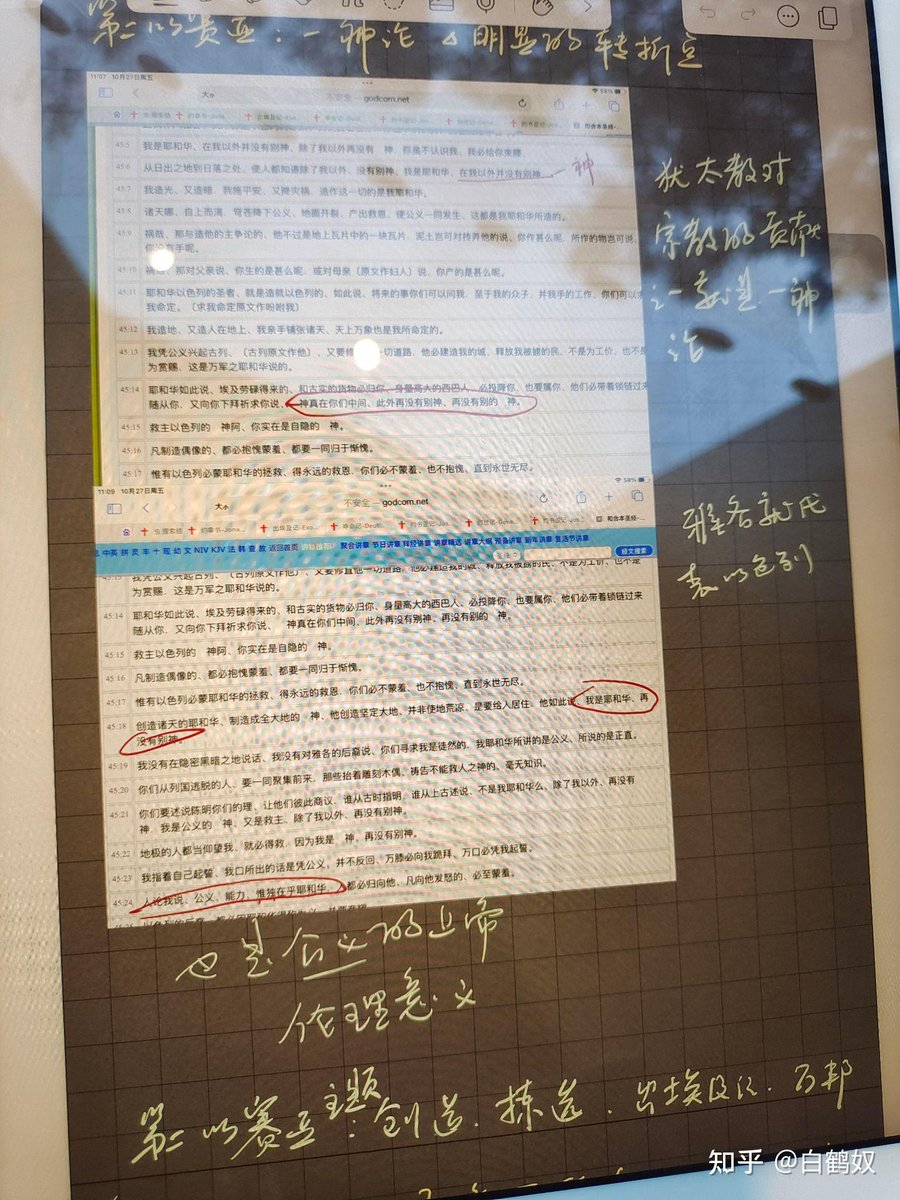 第二以赛亚：一神论 明显的转折点
11:07 10月27日周五
58%
大小
不安全 — godcom.net
45:5 我是耶和华、在我以外并没有别神、除了我以外再没有 神、你虽不认识我、我必给你束腰、
45:6 从日出之地到日落之处、使人都知道除了我以外、没有别神、我是耶和华、在我以外并没有别神、
一神
45:7 我造光、又造暗、我施平安、又降灾祸、造作这一切的是我耶和华。
45:8 诸天哪、自上而滴、穹苍降下公义、地面开裂、产出救恩、使公义一同发生、这都是我耶和华所造的。
45:9 祸哉、那与造他的主争论的、他不过是地上瓦片中的一块瓦片、泥土岂可对抟弄他的说、你作甚么呢、所作的物岂可说、
你没有手呢。
45:10 祸哉、那对父亲说、你生的是甚么呢、或对母亲〔原文作妇人〕说、你产的是甚么呢。
45:11 耶和华以色列的圣者、就是造就以色列的、如此说、将来的事你们可以问我、至于我的众子、并我手的工作、你们可以求
我命定。〔求我命定原文作吩咐我〕
45:12 我造地、又造人在地上、我亲手铺张诸天、天上万象也是我所命定的。
45:13 我凭公义兴起古列、〔古列原文作他〕、又要修 一切道路、他必建造我的城、释放我被掳的民、不是为工价、也不是
为赏赐、这是万军之耶和华说的。
45:14 耶和华如此说、埃及劳碌得来的、和古实的货物必归你、身量高大的西巴人、必投降你、也要属你、他们必带着锁链过来
随从你、又向你下拜祈求你说、 神真在你们中间、此外再没有别神、再没有别的 神。
45:15 救主以色列的 神阿、你实在是自隐的 神。
45:16 凡制造偶像的、都必抱愧蒙羞、都要一同归于惭愧。
45:17 惟有以色列必蒙耶和华的拯救、得永远的救恩、你们必不蒙羞、也不抱愧、直到永世无尽。
犹太教对
宗教的贡献
一神
论
11:09 10月27日周五
58%
大小
不安全 — godcom.net
中英 拼 灵 丰 十 现 幼 文 NIV KJV 法 韩 查 故 返回首页 聚会讲章 节日讲章 拜经讲章 讲章精选 讲章大纲 预备讲章 新年讲章 复活节讲章
经文搜索
我凭公义兴起古列、〔古列原文作他〕、又要修直他一切道路、他必建造我的城、释放我被掳的民、不是为工价、也不是
为赏赐、这是万军之耶和华说的。
45:14 耶和华如此说、埃及劳碌得来的、和古实的货物必归你、身量高大的西巴人、必投降你、也要属你、他们必带着锁链过来
随从你、又向你下拜祈求你说、 神真在你们中间、此外再没有别神、再没有别的 神。
45:15 救主以色列的 神阿、你实在是自隐的 神。
45:16 凡制造偶像的、都必抱愧蒙羞、都要一同归于惭愧。
45:17 惟有以色列必蒙耶和华的拯救、得永远的救恩、你们必不蒙羞、也不抱愧、直到永世无尽。
45:18 创造诸天的耶和华、制造成全大地的 神、他创造坚定大地、并非使地荒凉、是要给人居住、他如此说、我是耶和华、再
没有别神。
45:19 我没有在隐密黑暗之地说话、我没有对雅各的后裔说、你们寻求我是徒然的、我耶和华所讲的是公义、所说的是正直。
45:20 你们从列国逃脱的人、要一同聚集前来、那些抬着雕刻木偶、祷告不能救人之神的、毫无知识。
45:21 你们要述说陈明你们的理、让他们彼此商议、谁从古时指明、谁从上古述说、不是我耶和华么、除了我以外、再没有
神、我是公义的 神、又是救主、除了我以外、再没有别神。
45:22 地极的人都当仰望我、就必得救、因为我是 神、再没有别神。
45:23 我指着自己起誓、我口所出的话是凭公义、并不反回、万膝必向我跪拜、万口必凭我起誓。
45:24 人论我说、公义、能力、惟独在乎耶和华、人都必归向他、凡向他发怒的、必至蒙羞。
雅各就代
表以色列
也是公义的上帝
伦理意义
第二以赛亚主题：创造、拣选、出埃及记、万邦
知乎 @白鹤奴